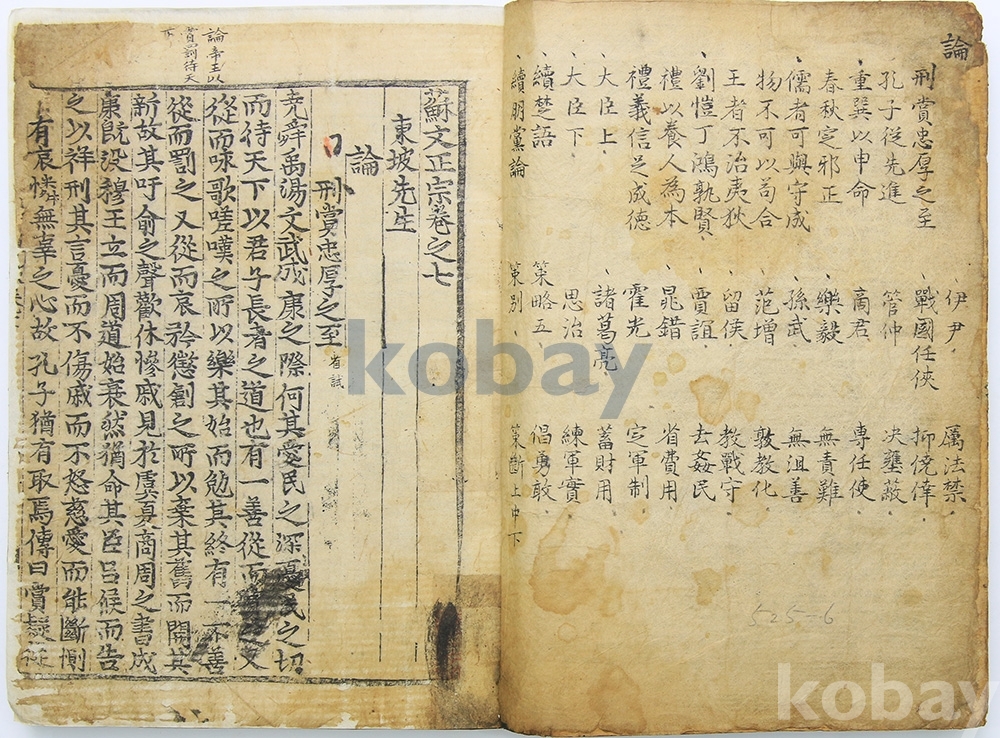 論
刑賞忠厚之至
孔子從先進
重巽以申命
春秋定邪正
儒者可與守成
物不可以苟合
王者不治夷狄
劉愷丁鴻孰賢
禮以養人為本
禮義信足成德
大臣上
大臣下
續楚語
續朋黨論
伊尹
戰國任俠
管仲
商君
樂毅
孫武
范增
留侯
賈誼
晁錯
霍光
諸葛亮
思治
策略五
策別
厲法禁
抑僥倖
决壅蔽
專任使
無責難
無沮善
敦教化
教戰守
去姦民
省費用
定軍制
蓄財用
練軍實
倡勇敢
策斷上中下
525-6
蘇文正宗卷之七
東坡先生
論
刑賞忠厚之至 省試
堯舜禹湯文武成康之際何其愛民之深憂民之切
而待天下以君子長者之道也有一善從而賞之又
從而咏歌嗟嘆之所以樂其始而勉其終有一不善
從而罰之又從而哀矜懲創之所以棄其舊而開其
新故其吁俞之聲歡休慘戚見於虞夏商周之書成
康旣沒穆王立而周道始衰然猶命其臣呂侯而告
之以祥刑其言憂而不傷戚而不怒慈愛而能斷惻
有哀憐無辜之心故孔子猶有取焉傳曰賞疑從
論帝王以
賞罰待天
下
kobay
kobay